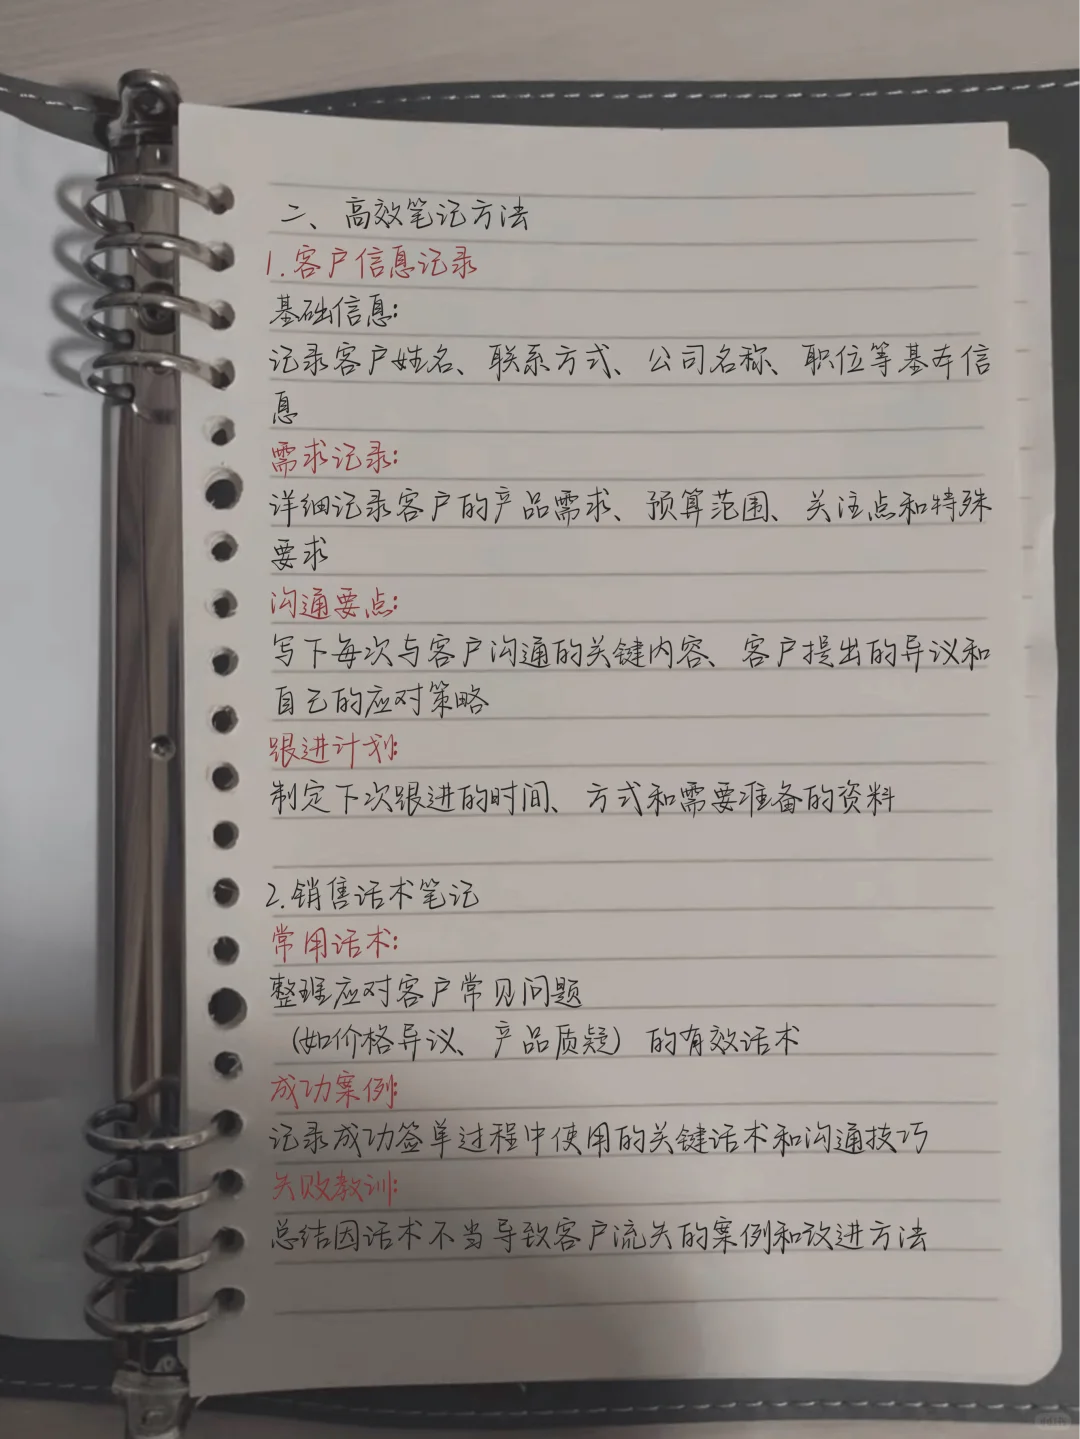 二、高效笔记方法
1.客户信息记录
基础信息:
记录客户姓名、联系方式、公司名称、职位等基本信
息
需求记录:
详细记录客户的产品需求、预算范围、关注点和特殊
要求
沟通要点:
写下每次与客户沟通的关键内容、客户提出的异议和
自己的应对策略
跟进计划:
制定下次跟进的时间、方式和需要准备的资料
2.销售话术笔记
常用话术:
整理应对客户常见问题
(如价格异议、产品质疑)的有效话术
成功案例:
记录成功签单过程中使用的关键话术和沟通技巧
失败教训:
总结因话术不当导致客户流失的案例和改进方法